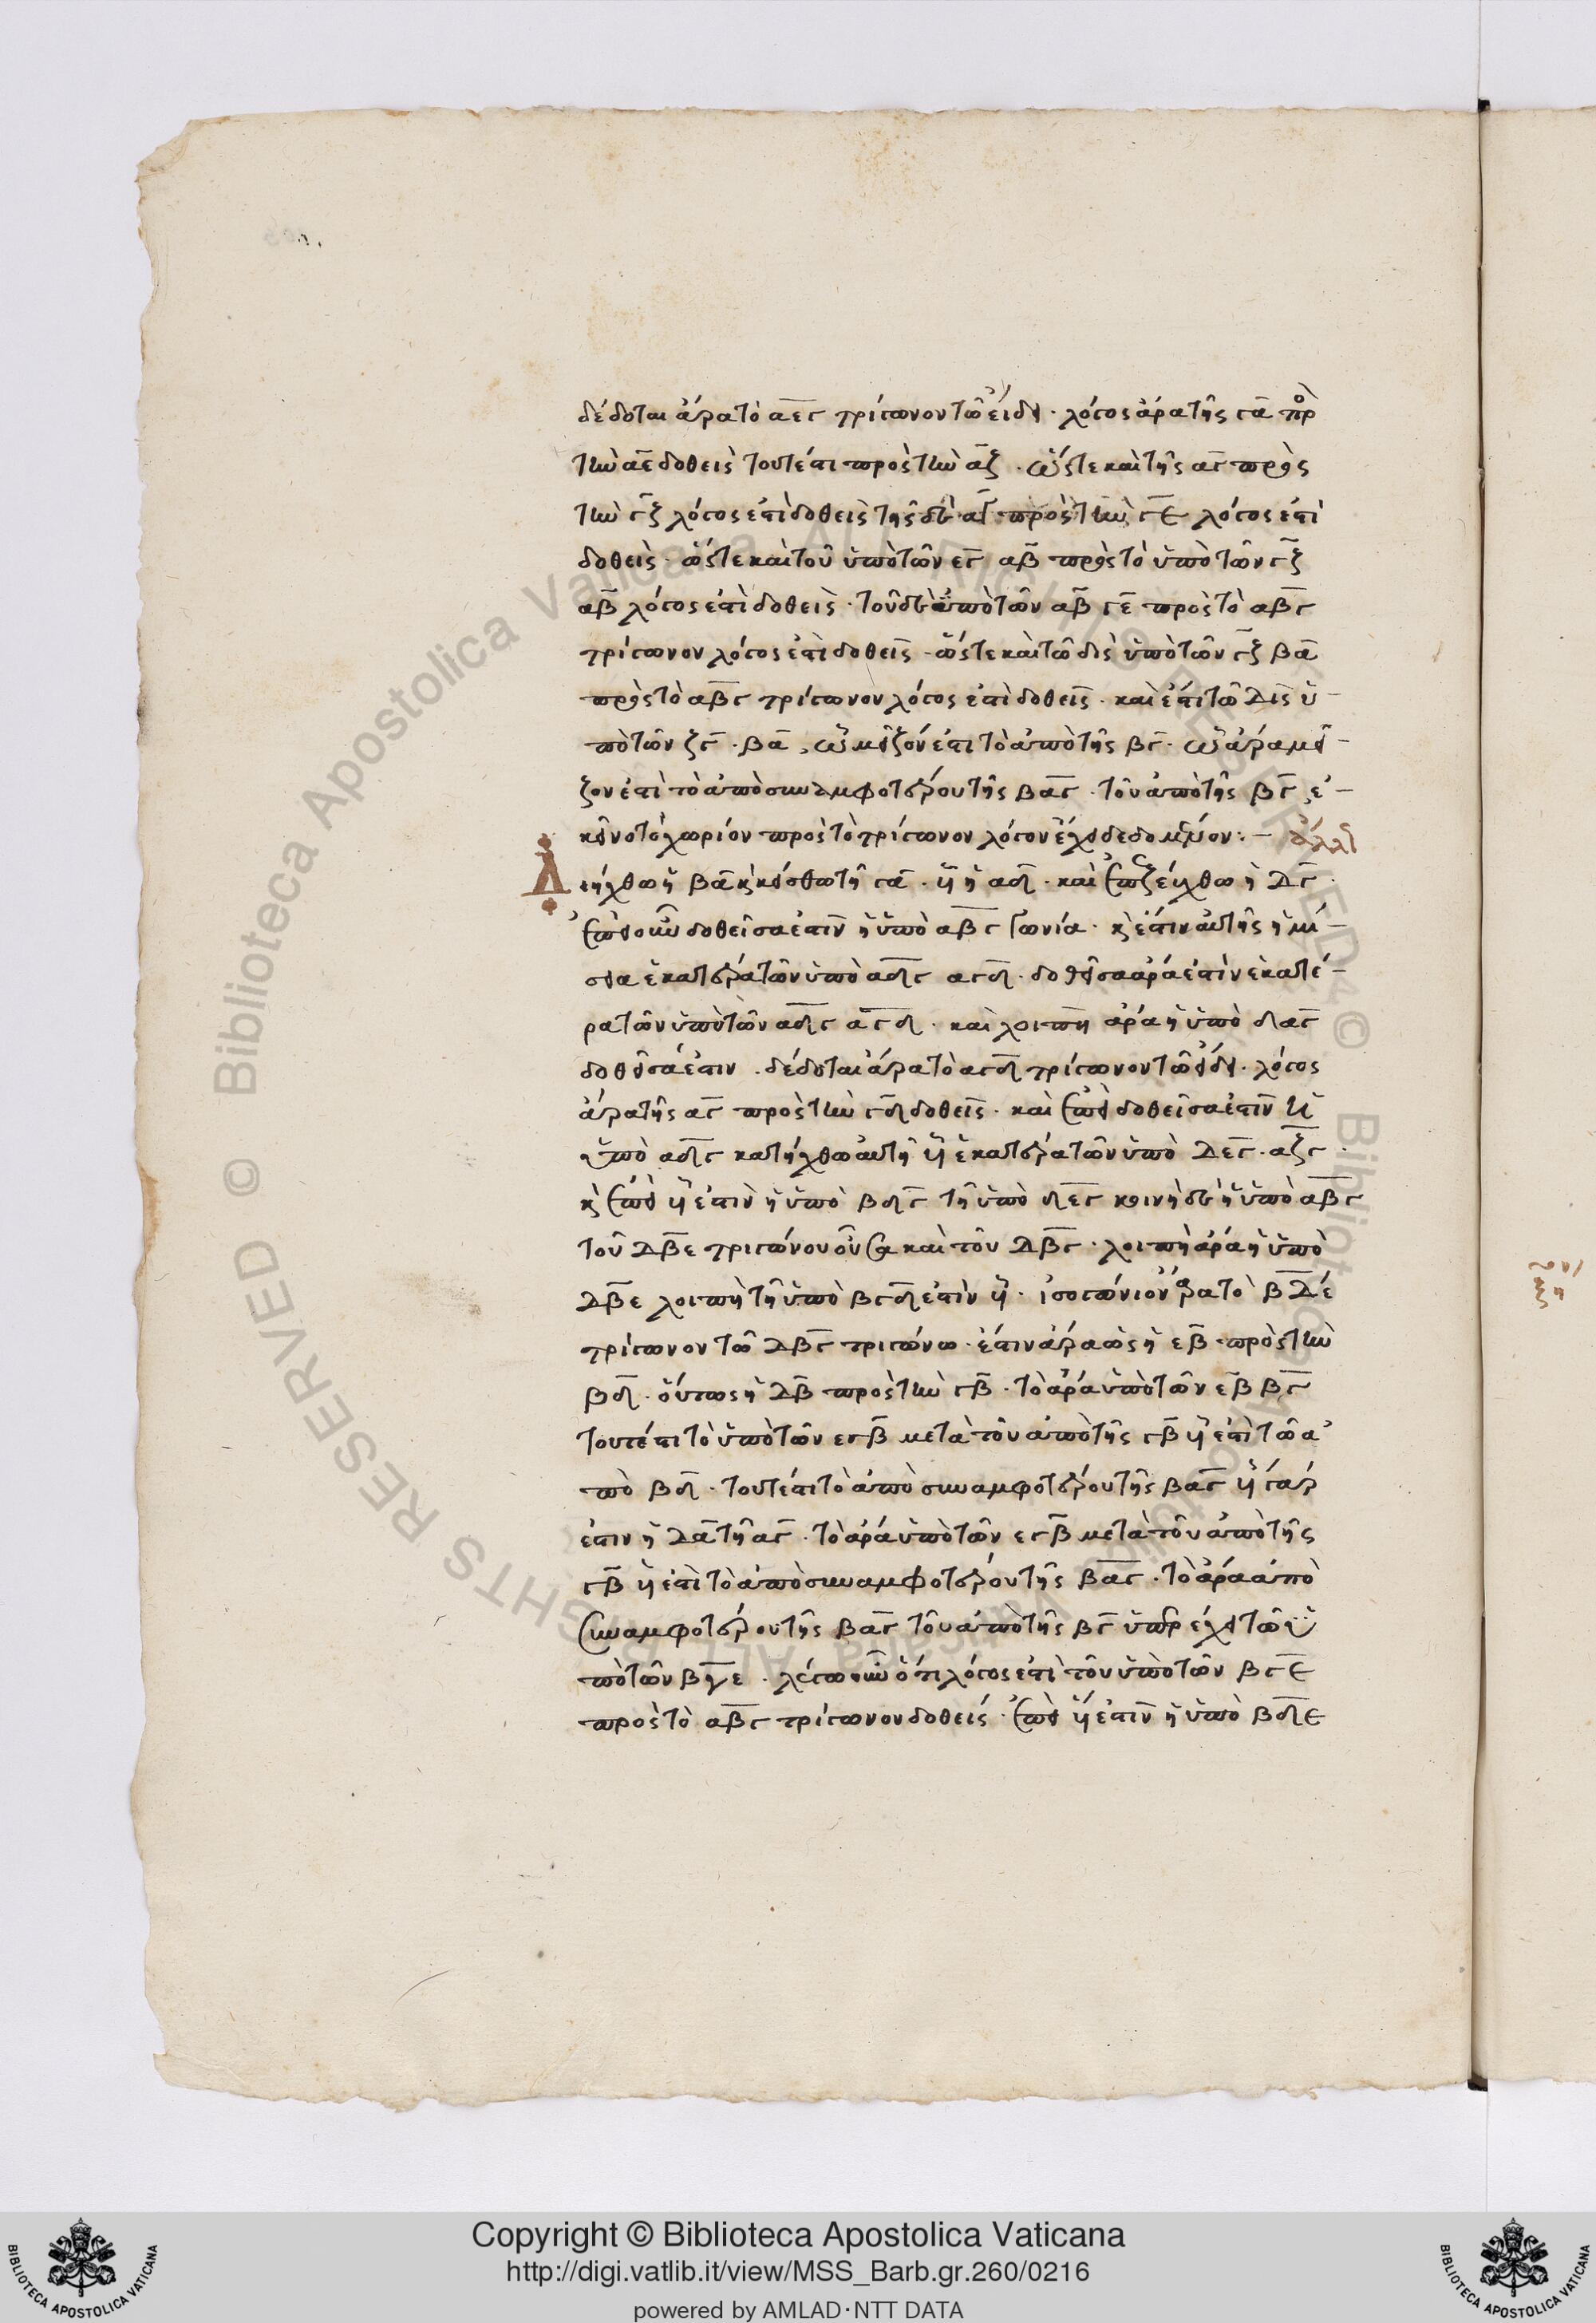 δέδοται ἄρα τὸ αεγ τρίγωνον τῶ εἴδει · λόγος ἄρα τῆς γα πρ
τὴν αε δοθεὶς τουτέστι πρὸς τὴν αζ · ὥστε καὶ τῆς αγ πρὸς
τὴν γζ λόγος ἐστὶ δοθεὶς τῆς δὲ αγ πρὸς τὴν γε λόγος ἐστὶ
δοθεὶς · ὥστε καὶ τοῦ ὑπὸ τῶν εγ αβ πρὸς τὸ ὑπὸ τῶν γζ
αβ λόγος ἐστὶ δοθεὶς · τοῦ δὲ ὑπὸ τῶν αβ γε πρὸς τὸ αβγ
τρίγωνον λόγος ἐστὶ δοθεὶς · ὥστε καὶ τῶ δὶς ὑπὸ τῶν γζ βα
πρὸς τὸ αβγ τρίγωνον λόγος ἐστὶ δοθεὶς · καὶ ἔστι τῶ δὶς ὑ-
πὸ τῶν ζγ · βα , ὧ μεῖζόν ἐστι τὸ ἀπὸ τῆς βγ · ὧ ἄρα μεῖ-
ζον ἐστὶ τὸ ἀπὸ συναμφοτέρου τῆς βαγ · τοῦ ἀπὸ τῆς βγ ἐ-
κεῖνο τὸ χωρίον πρὸς τὸ τρίγωνον λόγον ἔχει δεδομένον :-
Διήχθω ἡ βα κ κείσθω τῆ γα · ἴση ἡ αδ · καὶ ἐπεζεύχθω ἡ δγ ·
ἐπεὶ οὖν δοθεῖσα ἐστὶν ἡ ὑπὸ αβγ γωνία · κ ἔστιν αὐτῆς ἡμί-
σεια ἑκατέρα τῶν ὑπὸ αδγ αγδ · δοθεῖσα ἄρα ἐστὶν ἑκατέ-
ρα τῶν ὑπὸ τῶν αδγ αγδ · καὶ λοιπὴ ἄρα ἡ ὑπὸ δαγ
δοθεῖσά ἐστιν · δέδοται ἄρα τὸ αγδ τρίγωνον τῶ εἴδει · λόγος
ἄρα τῆς αγ πρὸς τὴν γδ δοθεὶς · καὶ ἐπεὶ δοθεῖσα ἐστὶν ἡ
ὑπὸ αδγ κατήχθω αὐτῆ ἴση ἑκατέρα τῶν ὑπὸ δεγ · αζγ ·
κ ἐπεὶ ἴση ἐστὶν ἡ ὑπὸ βδγ τῆ ὑπὸ δεγ κοινὴ δὲ ἡ ὑπὸ αβγ
τοῦ δβε τριγώνου οὖσα καὶ τοῦ δβγ · λοιπὴ ἄρα ἡ ὑπὸ
δβε λοιπῆ τῆ ὑπὸ βγδ ἐστὶν ἴση · ἰσογώνιον ἄρα τὸ βδέ
τρίγωνον τῶ δβγ τριγώνω · ἔστιν ἄρα ὡς ἡ εβ πρὸς τὴν
βδ · οὕτως ἡ δβ πρὸς τὴν γβ · τὸ ἄρα ὑπὸ τῶν εβ βγ
τουτέστι τὸ ὑπὸ τῶν εγβ μετὰ τοῦ ἀπὸ τῆς γβ ἴση ἐστὶ τῶ ἀ
πὸ βδ · τουτέστι τὸ ἀπὸ συναμφοτέρου τῆς βαγ ἴση γάρ
ἐστιν ἡ δα τῆ αγ · τὸ ἄρα ὑπὸ τῶν εγβ μετὰ τοῦ ἀπὸ τῆς
γβ ἴση ἐστὶ τὸ ἀπὸ συναμφοτέρου τῆς βαγ · τὸ ἄρα ἀπὸ
συναμφοτέρου τῆς βαγ τοῦ ἀπὸ τῆς βγ ὑπερέχει τῶ ὑ
πὸ τῶν βγε · λέγω οὖν ὅτι λόγος ἐστὶ τοῦ ὑπὸ τῶν βγε
πρὸς τὸ αβγ τρίγωνον δοθείς · ἐπεὶ ἴση ἐστὶν ἡ ὑπὸ βδε
Copyright © Biblioteca Apostolica Vaticana
http://digi.vatlib.it/view/MSS_Barb.gr.260/0216
powered by AMLAD·NTT DATA